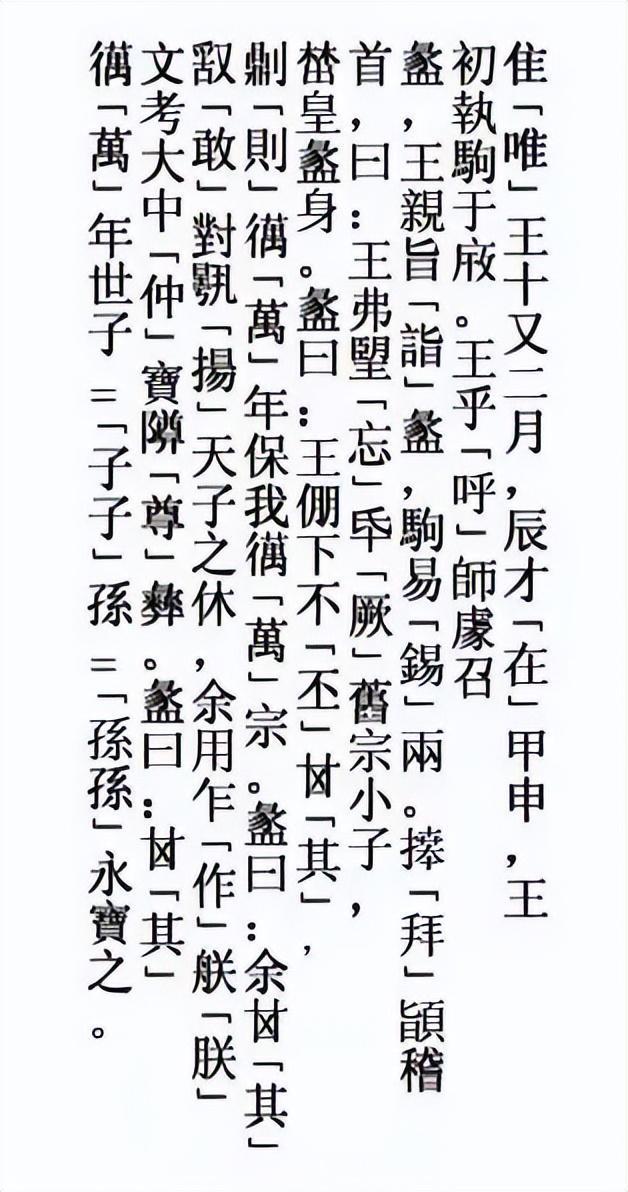 隹「唯」王十又二月，辰才「在」甲申，王
初執駒于。王乎「呼」師豦召
盠，王親旨「詣」盠，駒易「錫」兩。「拜」稽
首，曰：王弗朢「忘」氒「厥」舊宗小子，
皇盠身。盠曰：王倗下不「丕」「其」，
「則」「萬」年保我「萬」宗。盠曰：余「其」
「敢」對「揚」天子之休，余用乍「作」「朕」
文考大中「仲」寶「尊」彝。盠曰：「其」
「萬」年世子=「子子」孫=「孫孫」永寶之。